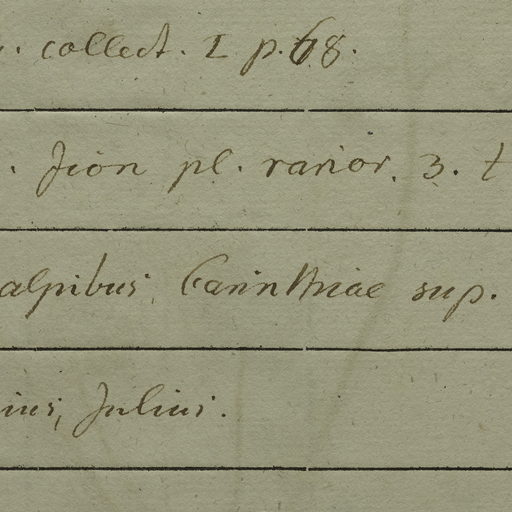 . collect. I p. 68.
. Icon pl. rarior. 3. t
alpibus Carinthiae sup.
ius, Julius.